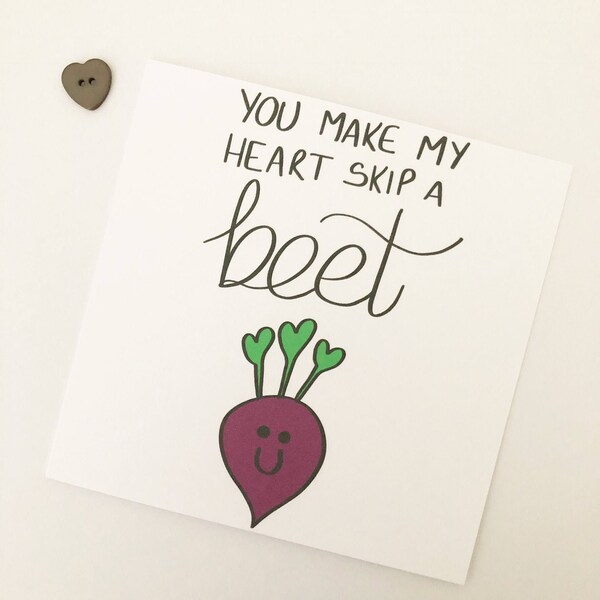 YOU MAKE MY
HEART SKIP A
beet